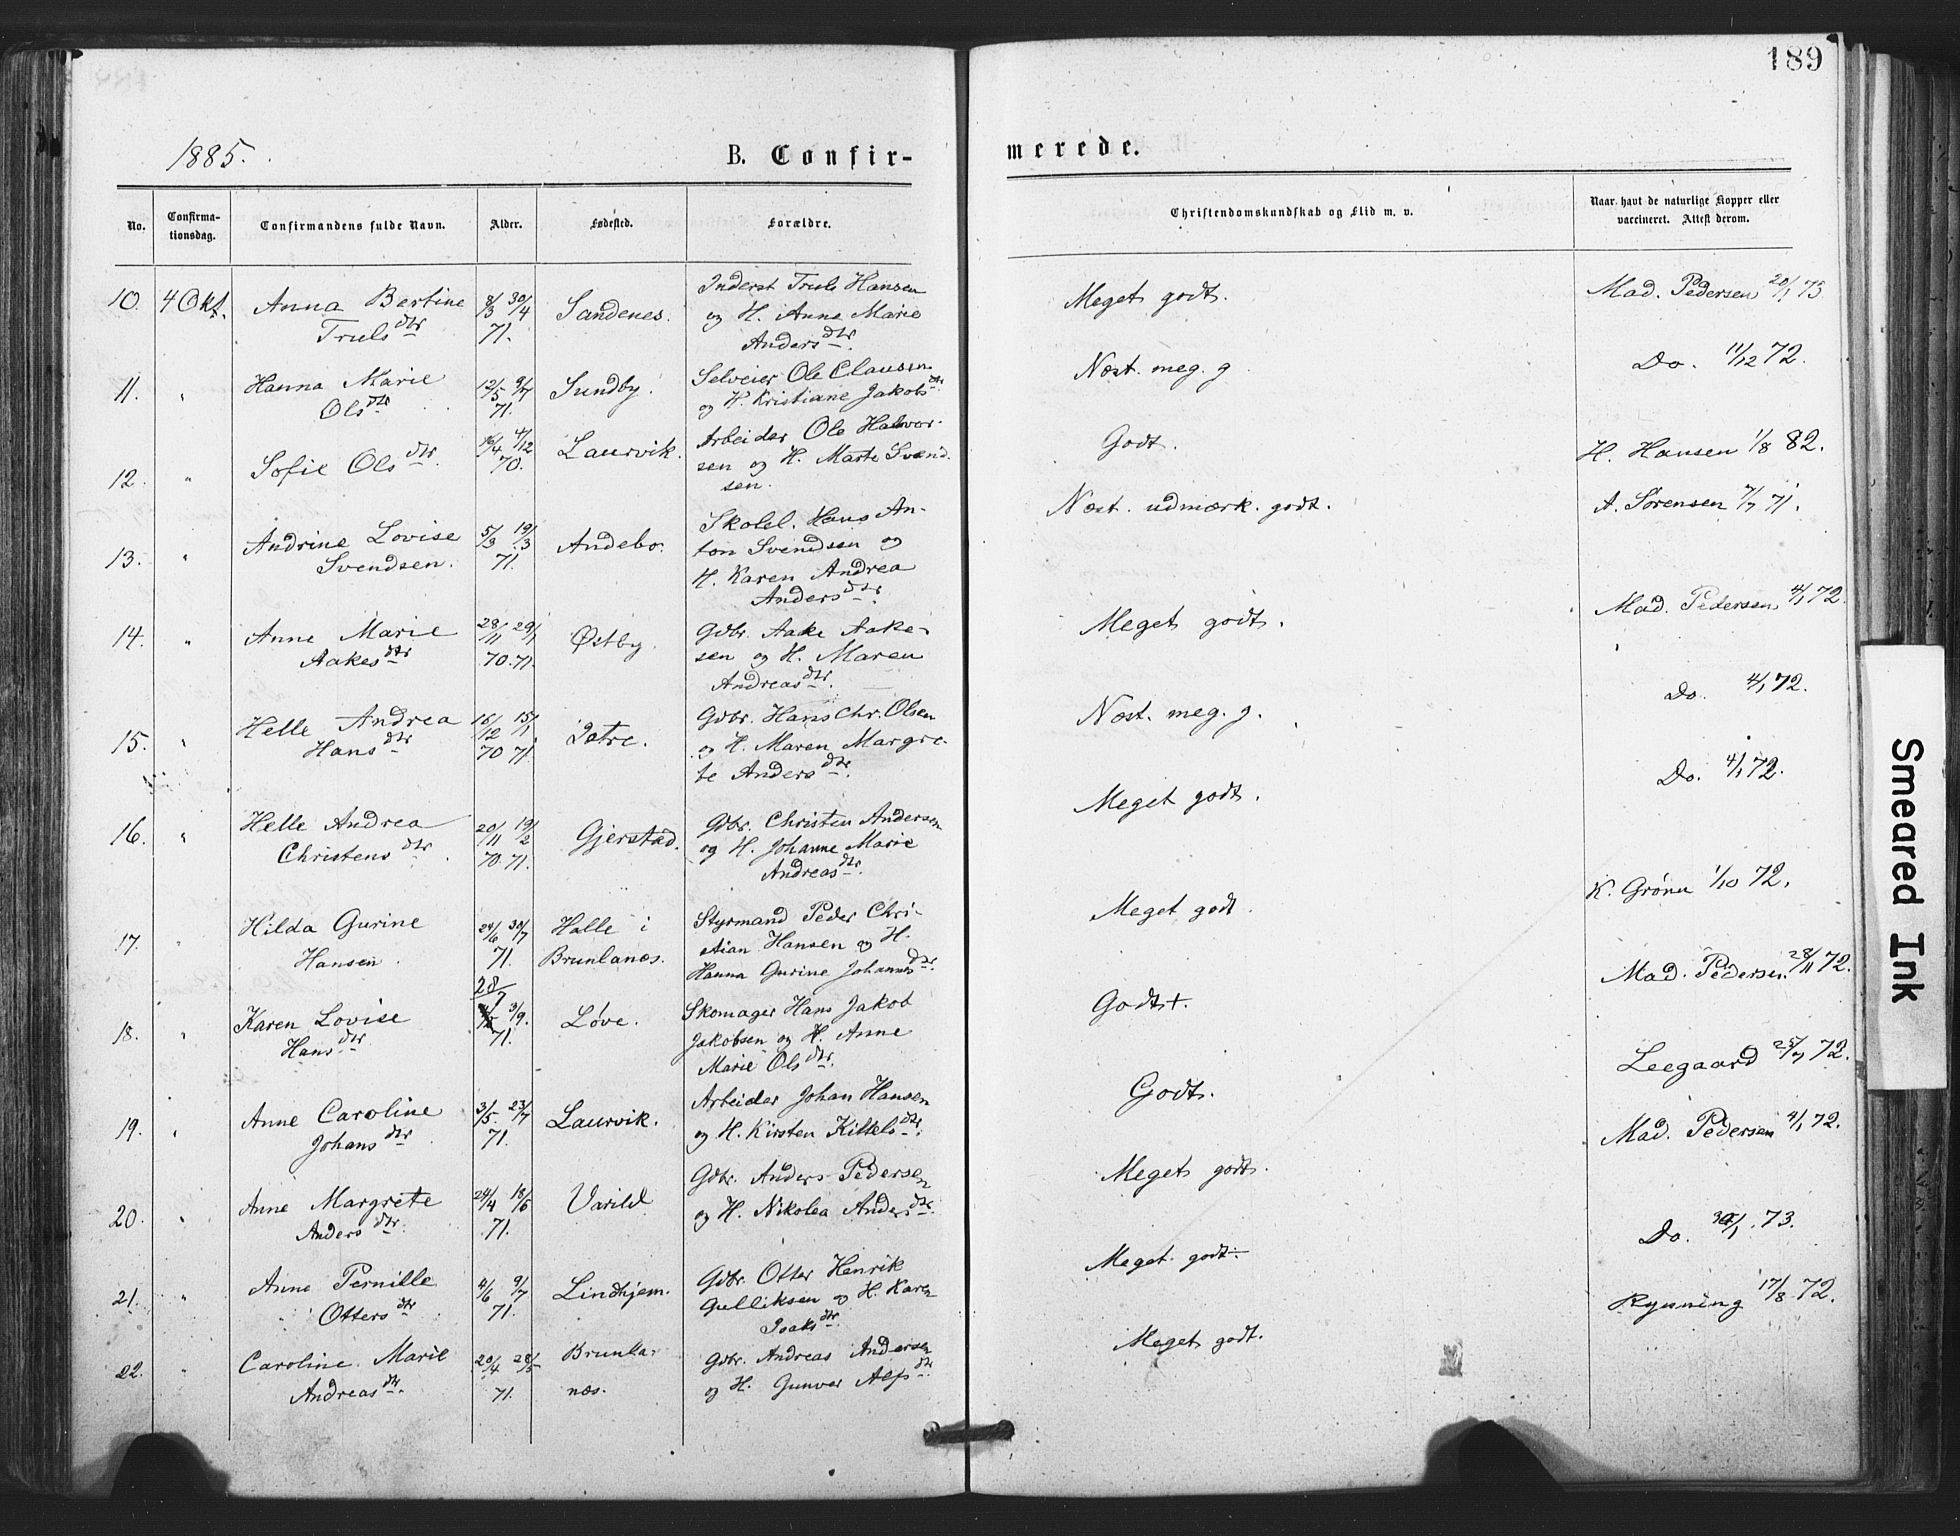 189
1885.
B. Confirmerede.
No. Confirmationsdag. Confirmandens fulde Navn. Alder. Fødested. Forældre. Christendomskundskab og Flid m. v. Naar havt de naturlige Kopper eller vaccineret. Attest derom.
10. 4 Okt. Anna Bertine 8/3 30/4 Sandenes. Inderst Truls Hansen Meget godt. Mad. Pedersen 20/1 73.
Truls dtr 71. og H. Anne Marie
Anders dtr.
11. " Hanna Marie 12/5 9/7 Sundby. Selveier Ole Clausen Næst. meg. g. Do. 11/12 72.
Ols dtr 71. og H. Kristiane Jakobs dtr
12. " Sofie Ols dtr. 16/4 4/12 Laurvik. Arbeider Ole Halvor- Godt. H. Hansen 1/8 82.
70. sen og H. Marte Svend-
sen.
13. " Andrine Lovise 5/3 19/3 Andebo. Skolel. Hans An- Næst. udmærk. godt. A. Sørensen 7/7 71.
Svendsen. 71. ton Svendsen og
H. Karen Andrea
Anders dtr.
14. " Anne Marie 28/11 29/1 Østby. Gdbr. Aake Aake- Meget godt. Mad. Pedersen 4/1 72.
Aakes dtr 70. 71. sen og H. Maren
Andreas dtr.
15. " Helle Andrea 16/12 15/1 Istre. Gdbr. Hans Chr. Olsen Næst. meg. g. Do. 4/1 72.
Hans dtr 70 71. og H. Maren Margre-
te Anders dtr.
16. " Helle Andrea 20/11 19/2 Gjerstad. Gdbr. Christen Andersen Meget godt. Do. 4/1 72.
Christens dtr. 70. 71. og H. Johanne Marie
Andreas dtr.
17. " Hilda Gurine 24/6 30/7 Halle i Styrmand Peder Chri- Meget godt. K. Grønn 1/10 72.
Hansen. 71. Brunlanes. stian Hansen og H.
Hanna Gurine Johannes dtr.
18. " Karen Lovise 28/7 3/9. Løve. Skomager Hans Jakob Godt +. Mad. Pedersen 28/11 72.
Hans dtr. 71. Jakobsen og H. Anne
Marie Ols dtr.
19. " Anne Caroline 3/5. 23/7 Laurvik. Arbeider Johan Hansen Godt. Leegaard 25/7 72.
Johans dtr 71. og H. Kirsten Kittels dtr.
20. " Anne Margrete 24/4 18/5 Varild. Gdbr. Anders Pedersen Meget godt. Mad. Pedersen 4/1 72.
Anders dtr. 71. og H. Nikolea Anders dtr.
21. " Anne Pernille 4/6 9/7 Lindhjem. Gdbr. Otter Henrik Meget godt ÷. Do. /1. 73.
Otters dtr 71. Gulliksen og H. Karen
Isaks dtr.
22. " Caroline Marie 20/4 28/5 Brunla- Gdbr. Andreas Andersen Meget godt. Rynning 17/8 72.
Andreas dtr. 71. næs. og H. Gunvor Alfs dtr.
Smeared Ink